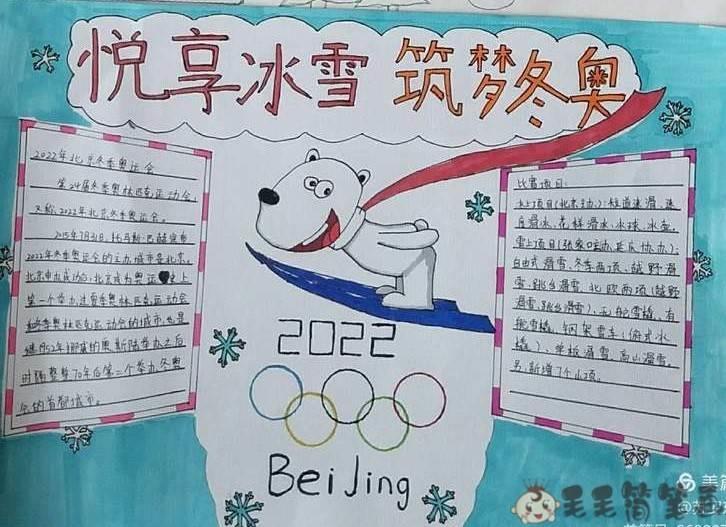 悦享冰雪 筑梦冬奥
2022年北京冬季奥运会
第24届冬季奥林匹克运动会,
又称2022年北京冬季奥运会。
2015年7月31日,托马斯·巴赫宣布
2022年冬季奥运会的主办城市是北京。
北京申办成功后,北京成为奥运史上
第一个举办过夏季奥林匹克运动会
和冬季奥林匹克运动会的城市,也是
继1952年挪威的奥斯陆举办之后
时隔整整70年后第二个举办冬奥
会的首都城市。
比赛项目:
冰上项目(北京主办):短道速滑、速
度滑冰、花样滑冰、冰球、冰壶。
雪上项目(张家口主办、延庆协办):
自由式滑雪、冬季两项、越野滑
雪、跳台滑雪、北欧两项(越野
滑雪、跳台滑雪)、无舵雪橇、有
舵雪橇、钢架雪车(俯式冰
橇)、单板滑雪、高山滑雪。
另新增7个小项。
2022
BeiJing
美篇
毛毛简笔画